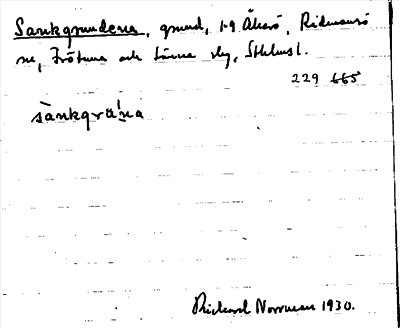 Sankgrundena, grund, 1-9 Åkerö, Ridmansö
sn, Frötuna och Länna slg, Sthlms l.
229 665
sànkgrúna
Rickard Norrman 1930.